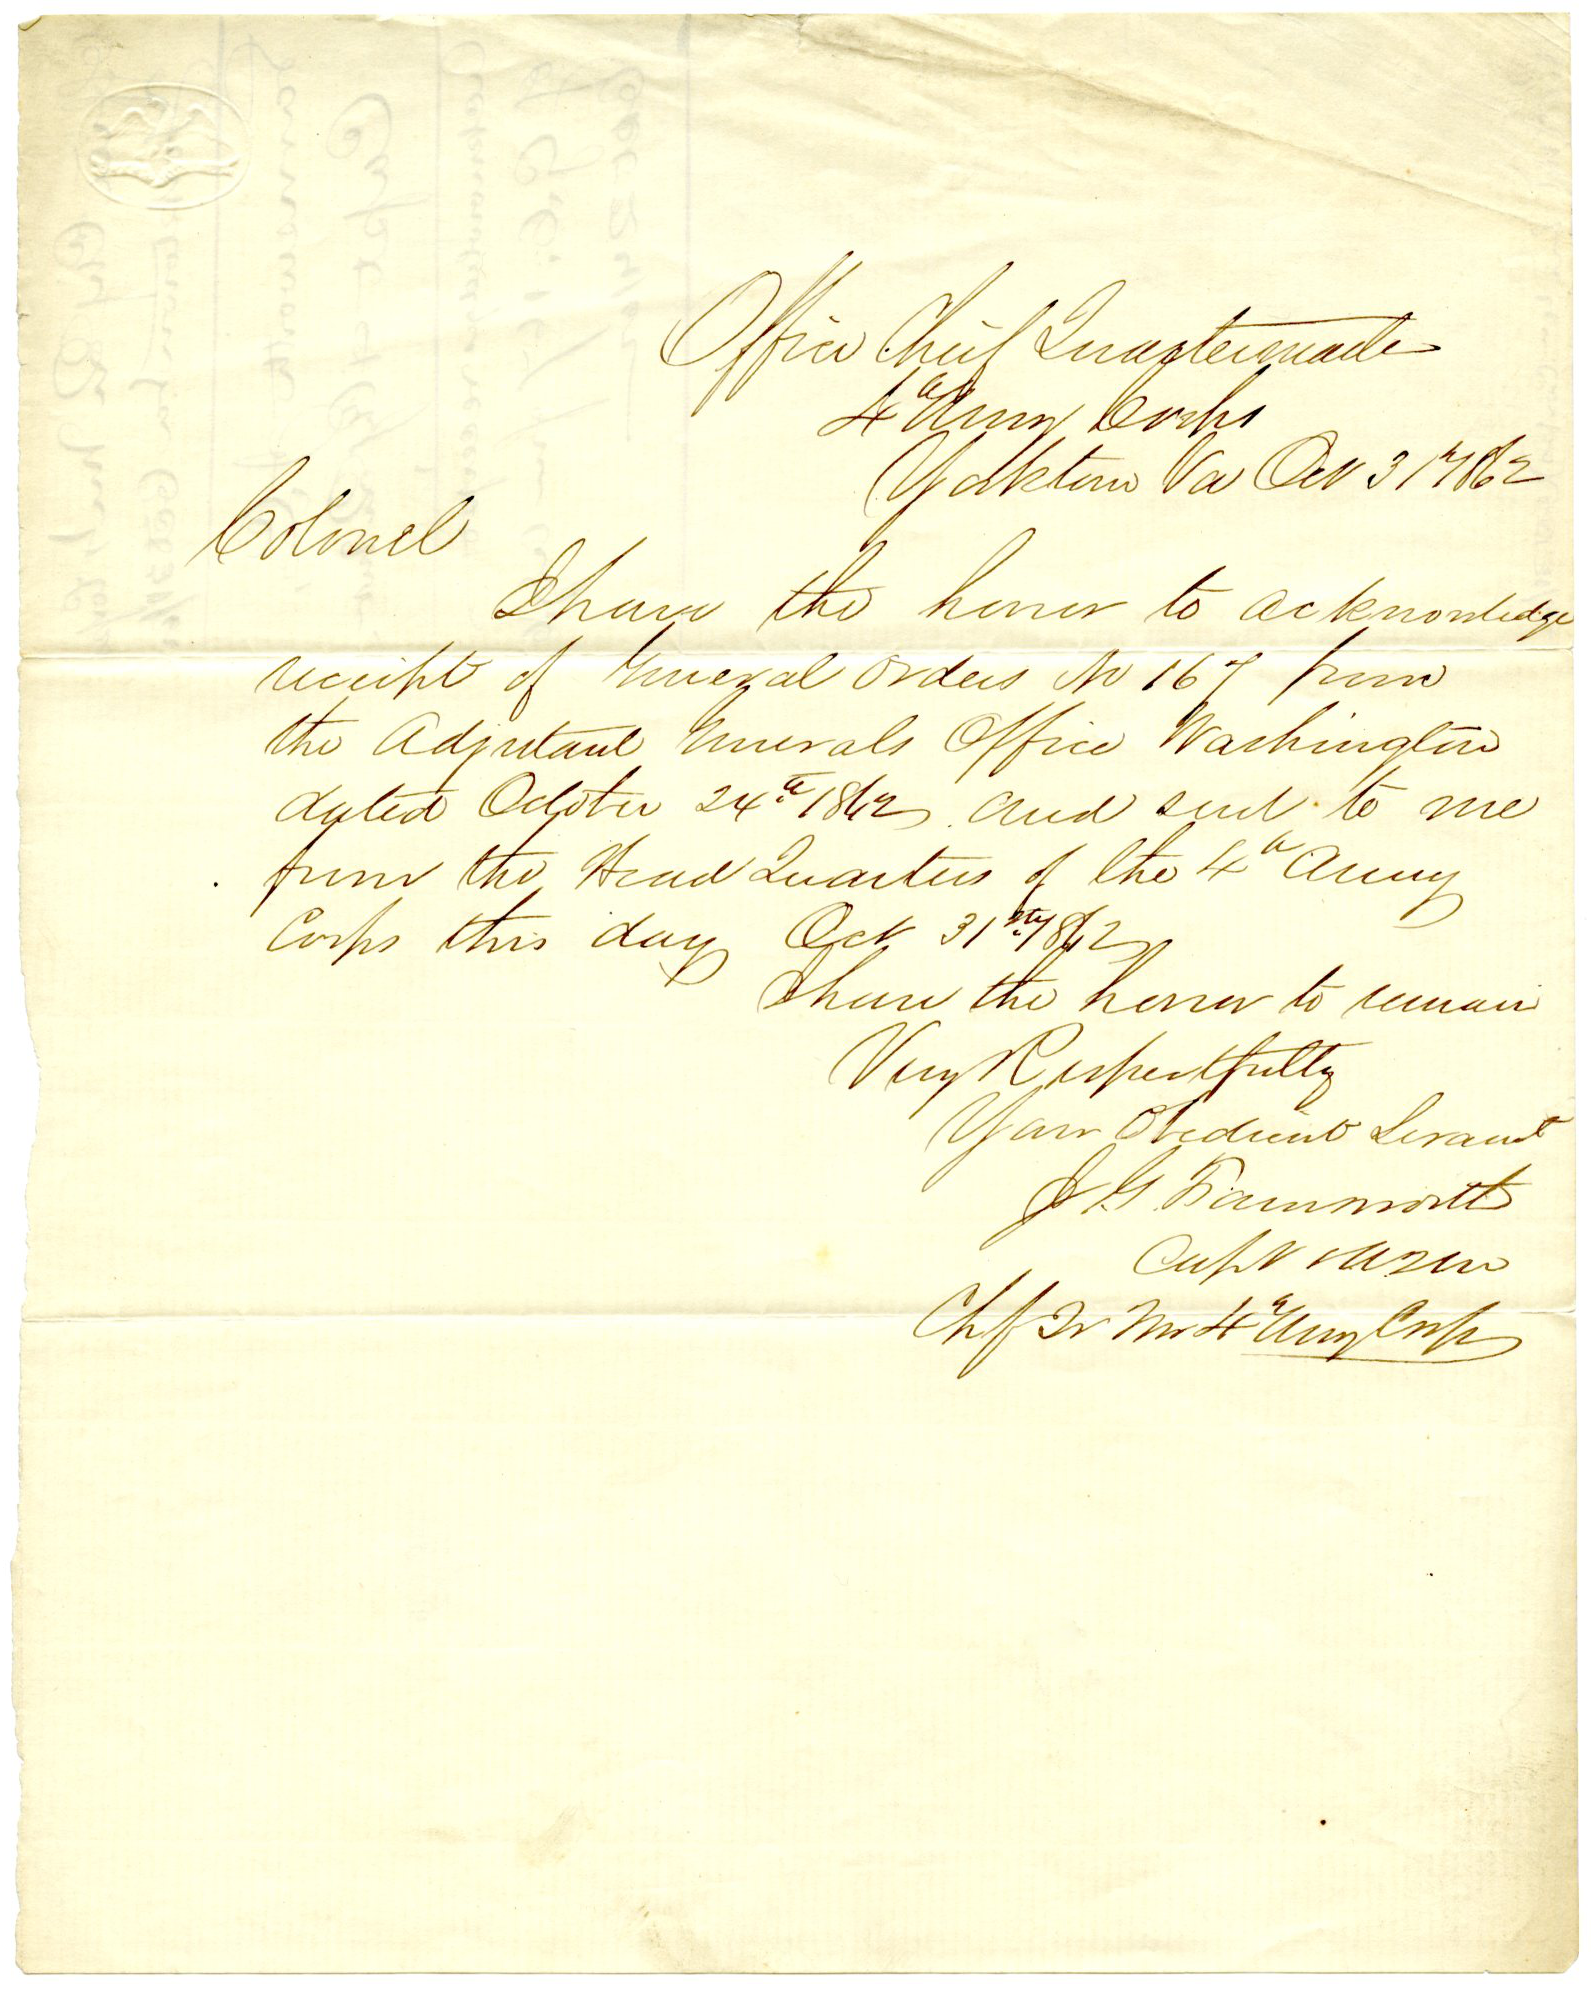 Office Chief Quartermaster
4th Army Corps
Yorktown Va Oct 31st 1862
Colonel
I have the honor to acknowledge
receipt of General Orders No 167 from
the Adjutant Generals Office Washington
dated October 24th 1862 and sent to me
from the Head Quarters of the 4th Army
Corps this day Oct 31st 1862
I have the honor to remain
Very Respectfully
Your Obedient Servant
J G Farnsworth
Capt & AQM
Chf Qr Mr 4th Army Corps